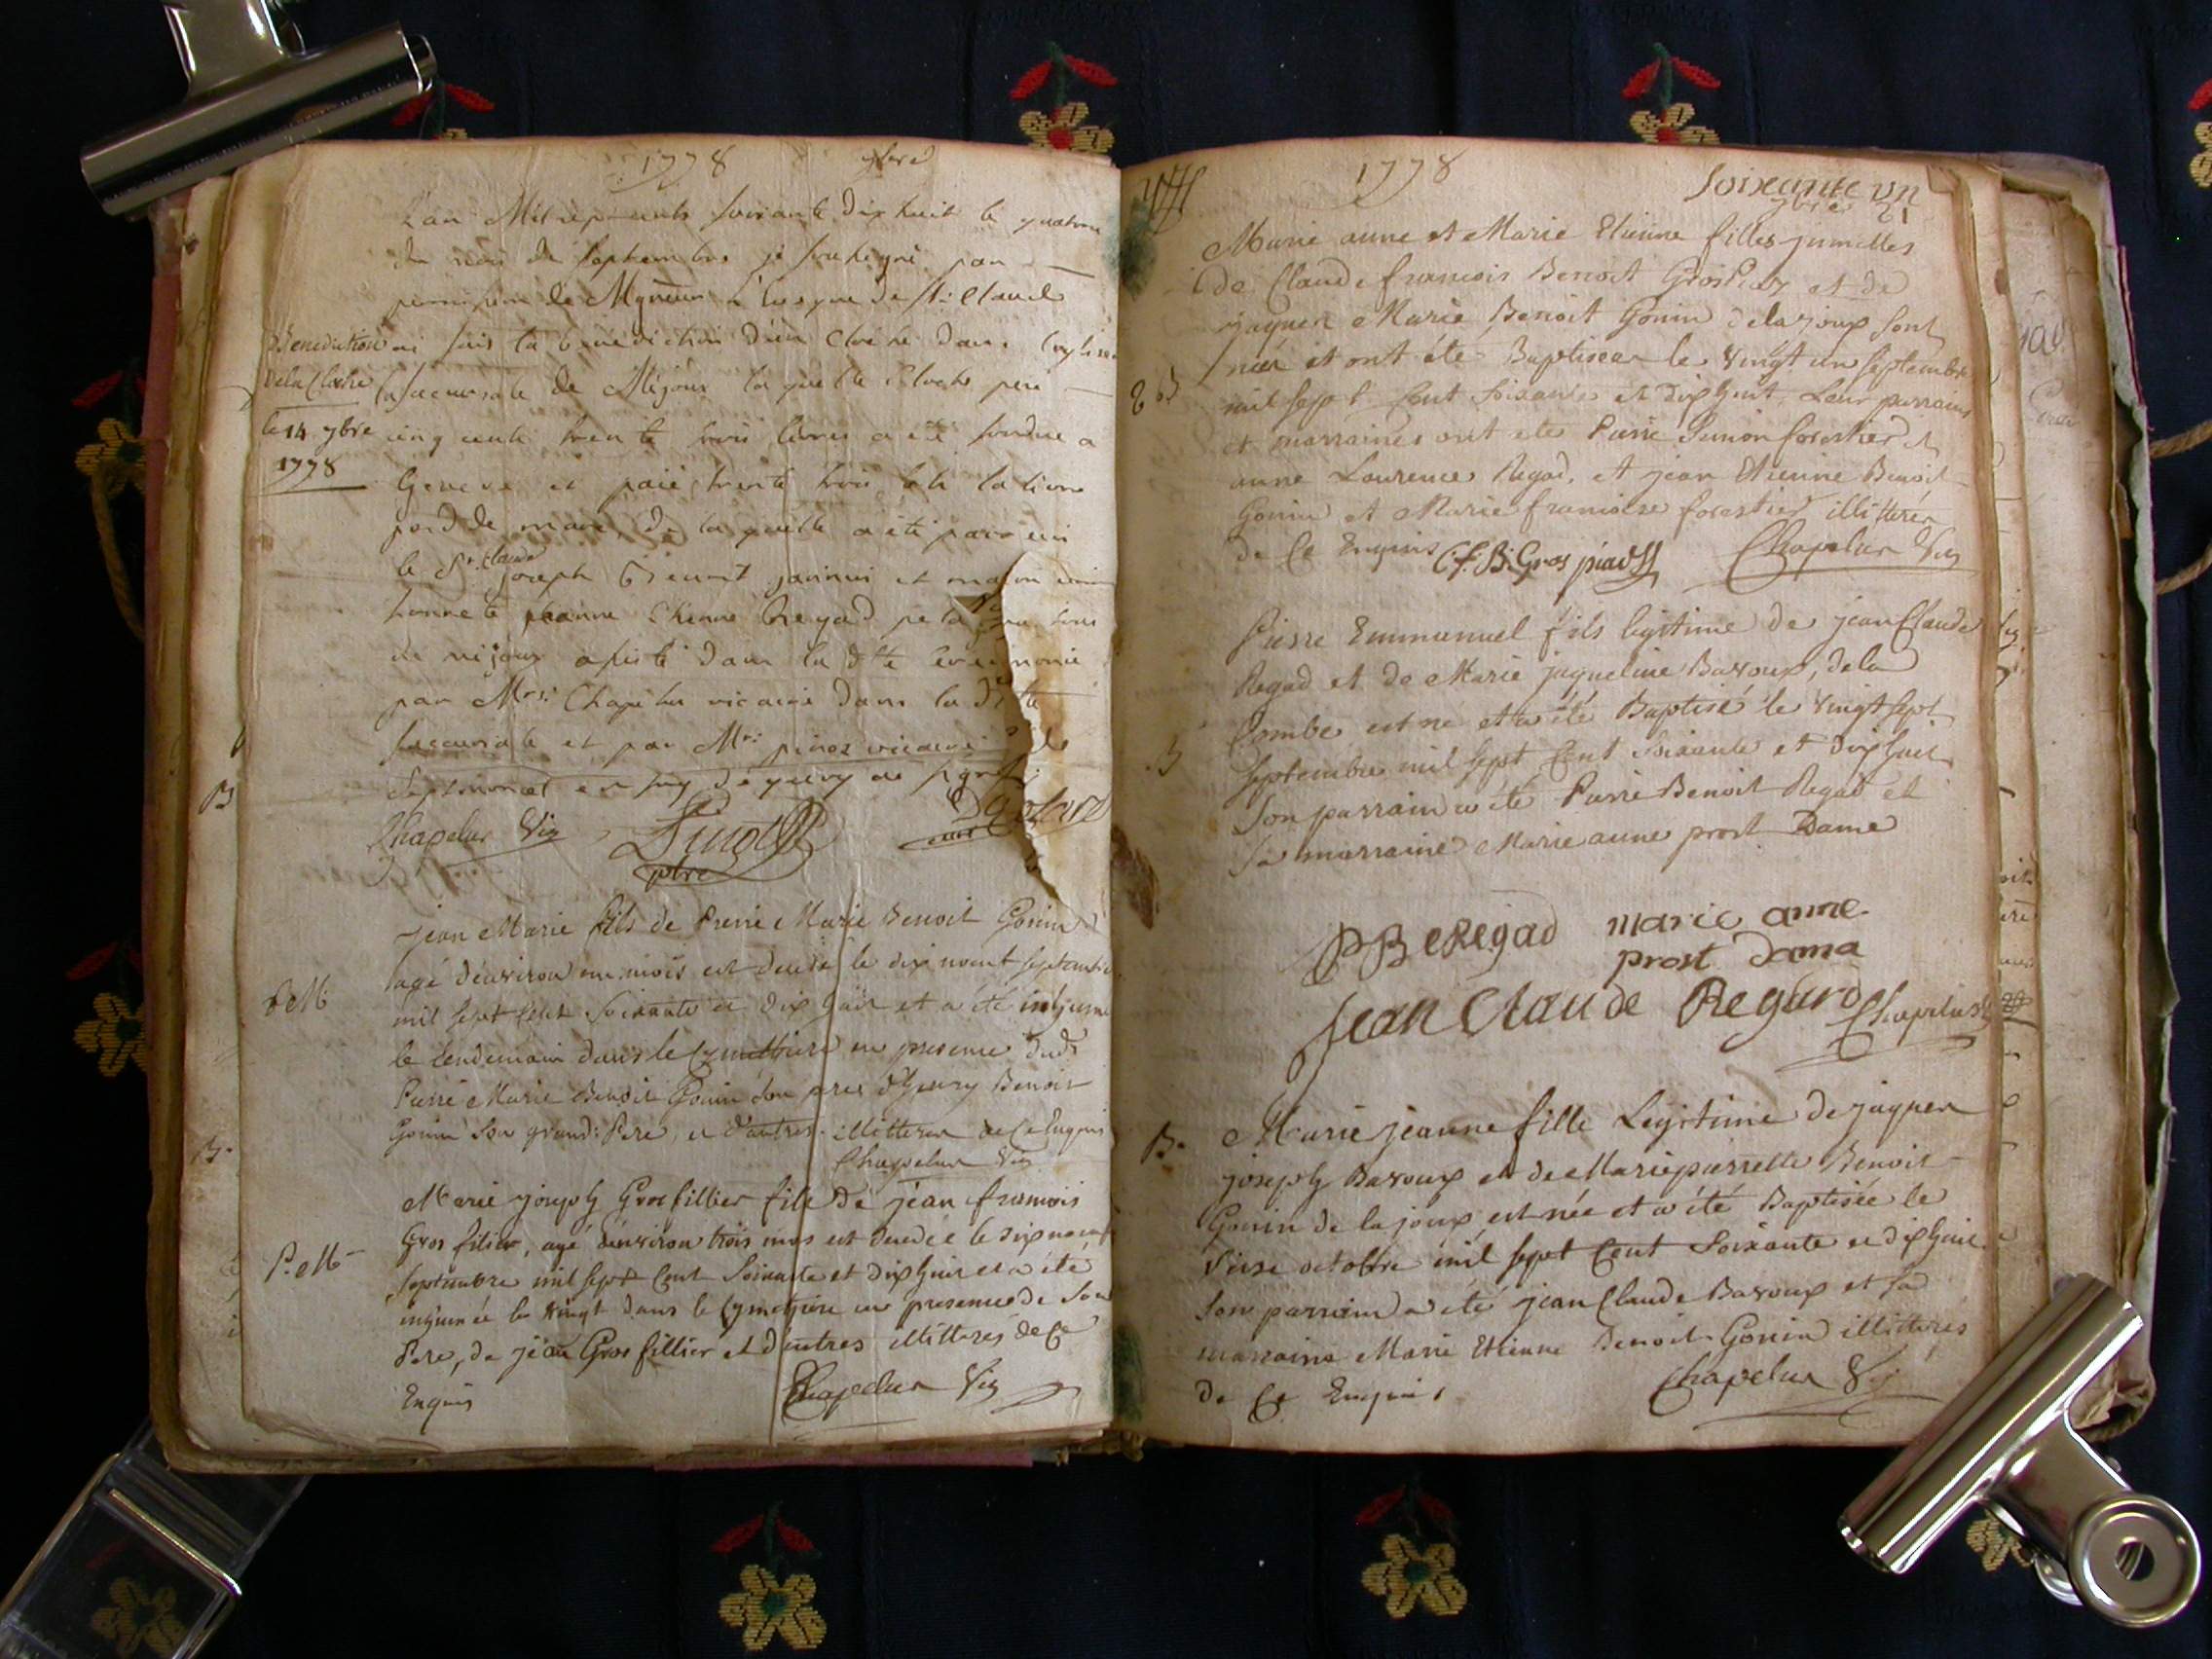 1778 7bre
L'an Mil sept cents soixante dix huit le quatorze
du mois de septembre je soussigné par
permission de Mgneur l'Evesque de St. Claude
Benediction ai fais la bénédiction d'un cloche dans l'eglise
de la Cloche succursale de Mijoux la quelle Cloche pese
le 14 7bre cinq cents trente trois livres a été fondue a
1778
Geneve et paié trente trois sols la livre
poid de marc, de la quelle a été parrein
le Sr. Claude joseph Benoit janinni et
honnete jeanne Etienne Regad
de mijoux assisté dans la dte ceremonie
par Mrs. Chapelus vicaire dans la dte
succursale et par Mr. pinoz vicaire de
Septmoncel en foy de quoy ai signé
Chapelus Vic
ptre
P. M
jean Marie fils de Pierre Marie Benoit Gonin
agé d'environ un mois est decedé le dix neuf septembre
mil sept Cent Soixante et dix huit et a été inhumé
le lendemain dans le Cymettiere en presence dudt
Pierre Marie Benoit Gonin son pere d'henry Benoit
Gonin son grand: Pere, et d'autres illitteres de Ce Enquis
Chapelus Vic
P. M
Marie joseph Gros fillier fille de jean francois
Gros filier, agé d'environ trois mois est decedée le dix neuf
Septembre mil sept Cent Soixante et dix huit et a été
inhumée le vingt dans le Cymettiere en presence de son
Pere, de jean Gros fillier et d'autres illitteres de Ce
Enquis Chapelus Vic
B
B.
1778 Soixante un
7bre 21
Marie anne et Marie Etienne filles jumelles
de Claude francois Benoit Gros Piaz et de
jaquer Marie Benoit Gonin de la joux sont
nées et ont été Baptisées le vingt un septembre
2 B
mil sept Cent soixante et dix huit. Leur parrains
et marraines ont été Pierre Simon forestier et
anne Laurence Regad, et jean Etienne Benoit
Gonin et Marie francoise forestier illitterés
de Ce Enquis C. f. B. Gros piad Chapelus Vic
Pierre Emmanuel fils legitime de jean Claude
Regad et de Marie jaqueline Baroux, de la
Combe est né et a été Baptisé le vingt sept
B
septembre mil sept Cent soixante et dix huit
son parrain a été Pierre Benoit Regad et
sa marraine Marie anne prost Dame
PB Regad marie anne
prost dama
jean Claude Regard Chapelus
B.
Marie jeanne fille Legitime de jaquer
joseph Baroux et de Marie pierrette Benoit
Gonin de la joux est née et a été Baptisée le
octobre mil sept Cent Soixante et dix huit
son parrain a été jean Claude Baroux et sa
marraine Marie Etienne Benoit Gonin illitterés
de Ce Enquis Chapelus Vic